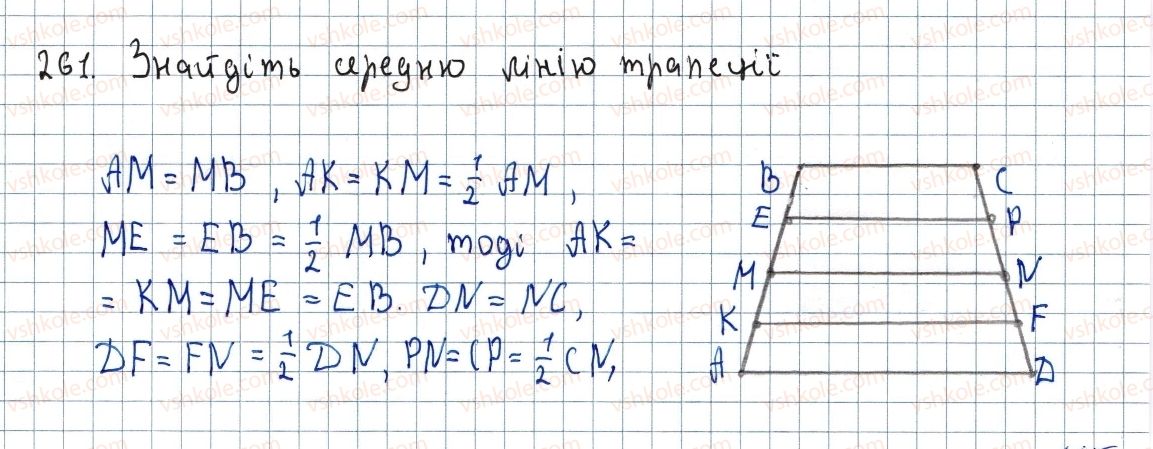 261. Знайдіть середню лінію трапеції
AM = MB, AK = KM = 1/2 AM,
ME = EB = 1/2 MB, тоді AK =
= KM = ME = EB. DN = NC,
DF = FN = 1/2 DN, PN = CP = 1/2 CN,
B C
E P
M N
K F
A D
vshkole.com